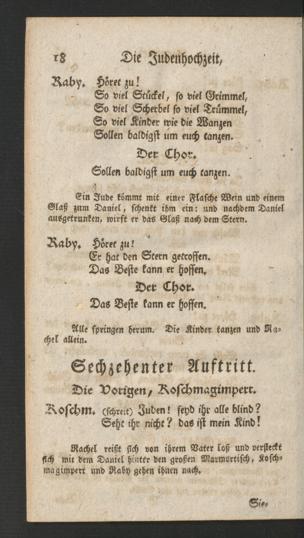 18 Die Judenhochzeit,
Raby. Höret zu!
So viel Stückel, so viel Grimmel,
So viel Scherbel so viel Trümmel,
So viel Kinder wie die Wanzen
Sollen baldigst um euch tanzen.
Der Chor.
Sollen baldigst um euch tanzen.
Ein Jude kömmt mit einer Flasche Wein und einem
Glaß zum Daniel, schenkt ihm ein: und nachdem Daniel
ausgetrunken, wirft er das Glaß nach dem Stern.
Raby. Höret zu!
Er hat den Stern getroffen.
Das Beste kann er hoffen.
Der Chor.
Das Beste kann er hoffen.
Alle springen herum. Die Kinder tanzen und Ra-
chel allein.
Sechzehenter Auftritt.
Die Vorigen, Roschmagimpert.
Roschm. (schreit) Juden! seyd ihr alle blind?
Seht ihr nicht? das ist mein Kind!
Rachel reißt sich von ihrem Vater loß und versteckt
sich mit dem Daniel hinter den großen Marmortisch, Rosch-
magimpert und Raby gehen ihnen nach.
Sie-